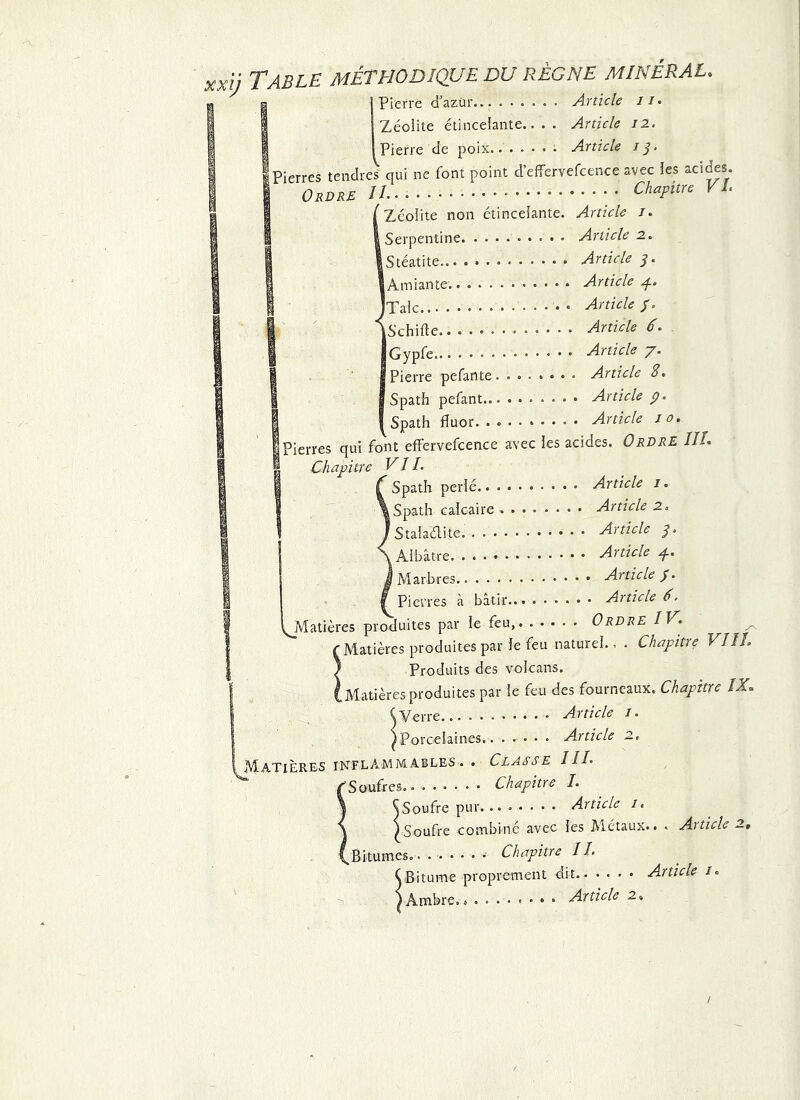 xxij TABLE MÉTHODIQUE DU RÈGNE MINÉRAL.
Pierre d'azur......... Article 11.
Zéolite étincelante.... Article 12.
Pierre de poix....... Article 13.
Pierres tendres qui ne font point d'effervefcence avec les acides.
ORDRE II..................... Chapitre VI.
Zéolite non étincelante. Article 1.
Serpentine.......... Article 2.
Stéatite............. Article 3.
Amiante............ Article 4.
Talc............... Article 5.
Schifte............. Article 6.
Gypfe.............. Article 7.
Pierre pefante........ Article 8.
Spath pefant.......... Article 9.
Spath fluor.......... Article 10.
Pierres qui font effervefcence avec les acides. ORDRE III.
Chapitre VII.
Spath perlé.......... Article 1.
Spath calcaire........ Article 2.
Stalactite............ Article 3.
Albâtre............. Article 4.
Marbres............. Article 5.
Pierres à bâtir......... Article 6.
Matières produites par le feu,...... ORDRE IV.
Matières produites par le feu naturel... Chapitre VIII.
Produits des volcans.
Matières produites par le feu des fourneaux. Chapitre IX.
Verre........... Article 1.
Porcelaines........ Article 2.
MATIÈRES INFLAMMABLES.. CLASSE III.
Soufres......... Chapitre I.
Soufre pur........ Article 1.
Soufre combiné avec les Métaux... Article 2.
Bitumes......... Chapitre II.
Bitume proprement dit...... Article 1.
Ambre.......... Article 2.